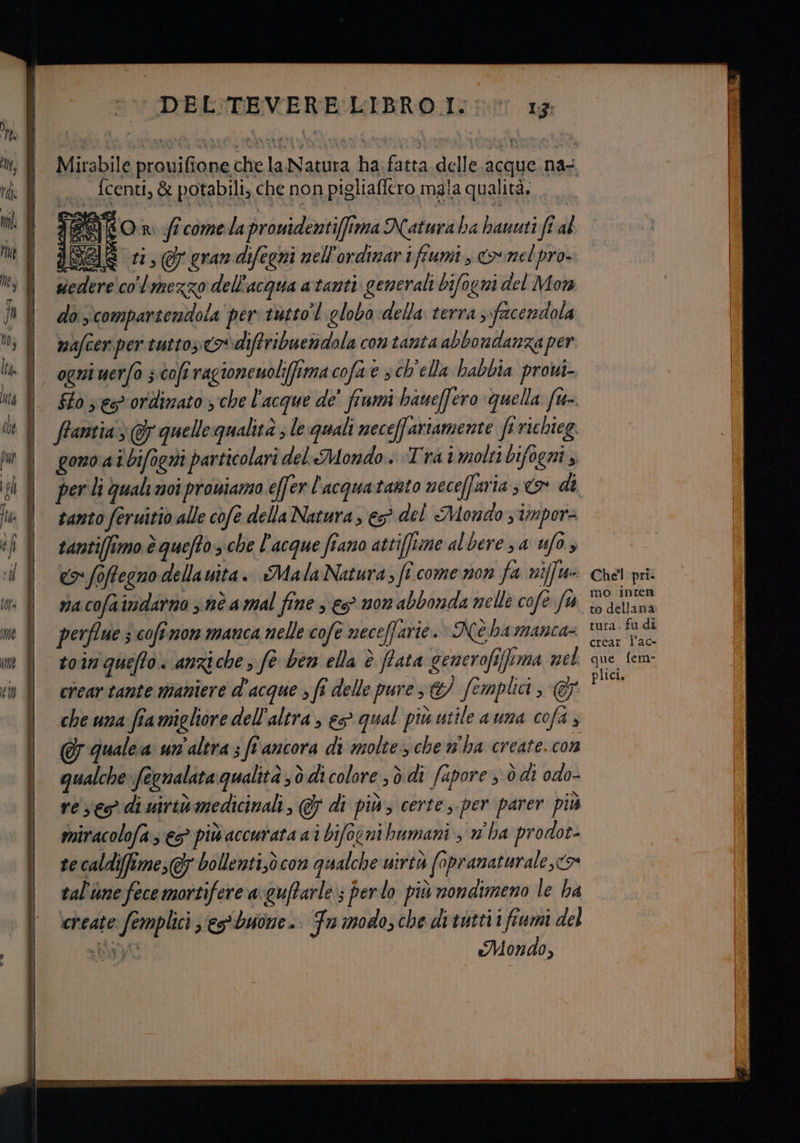 DEL TEVERE LIBRO I. 13
Mirabile prouiſione che la Natura ha fatta delle acque na-
ſcenti, & potabili, che non pigliaſſero mala qualità.
Or ſi come la prouidentiſſima Natura ha hauuti ſi al
ti, & gran diſegni nell'ordinar i fiumi, & nel pro-
uedere co'l mezzo dell'acqua a tanti generali biſogni del Mon
do, compartendola per tutto'l globo della terra, facendola
naſcer per tutto, & diſtribuendola con tanta abbondanza per
ogni uerſo; coſi ragioneuoliſſima coſa è, ch'ella habbia proui-
ſto, & ordinato, che l'acque de' fiumi haueſſero quella ſu-
ſtantia, & quelle qualità, le quali neceſſariamente ſi richieg
gono a i biſogni particolari del Mondo. Tra i molti biſogni,
per li quali noi prouiamo eſſer l'acqua tanto neceſſaria, & di
tanto ſeruitio alle coſe della Natura, & del Mondo, impor-
tantiſſimo è queſto, che l'acque ſiano attiſſime al bere, a uſo,
& ſoſtegno della uita. Ma la Natura, ſi come non fa niſſu-
na coſa indarno, nè a mal fine, & non abbonda nelle coſe ſu
perflue; coſi non manca nelle coſe neceſſarie. Nè ha manca-
to in queſto. anzi che, ſe ben ella è ſtata generoſiſſima nel
crear tante maniere d'acque, ſi delle pure, & ſemplici, &
che una ſia migliore dell'altra, & qual più utile a una coſa,
& quale a un'altra; ſi ancora di molte, che n'ha create con
qualche ſegnalata qualità, ò di colore, ò di ſapore, ò di odo-
re, & di uirtù medicinali, & di più, certe, per parer più
miracoloſa, & più accurata a i biſogni humani, n'ha prodot-
te caldiſſime, & bollenti, ò con qualche uirtù ſopranaturale, &
tal'une fece mortifere a guſtarle; per lo più nondimeno le ha
create ſemplici, & buone. In modo, che di tutti i fiumi del
Mondo,
Che'l pri-
mo inten
to della na
tura fu di
crear l'ac-
que ſem-
plici.